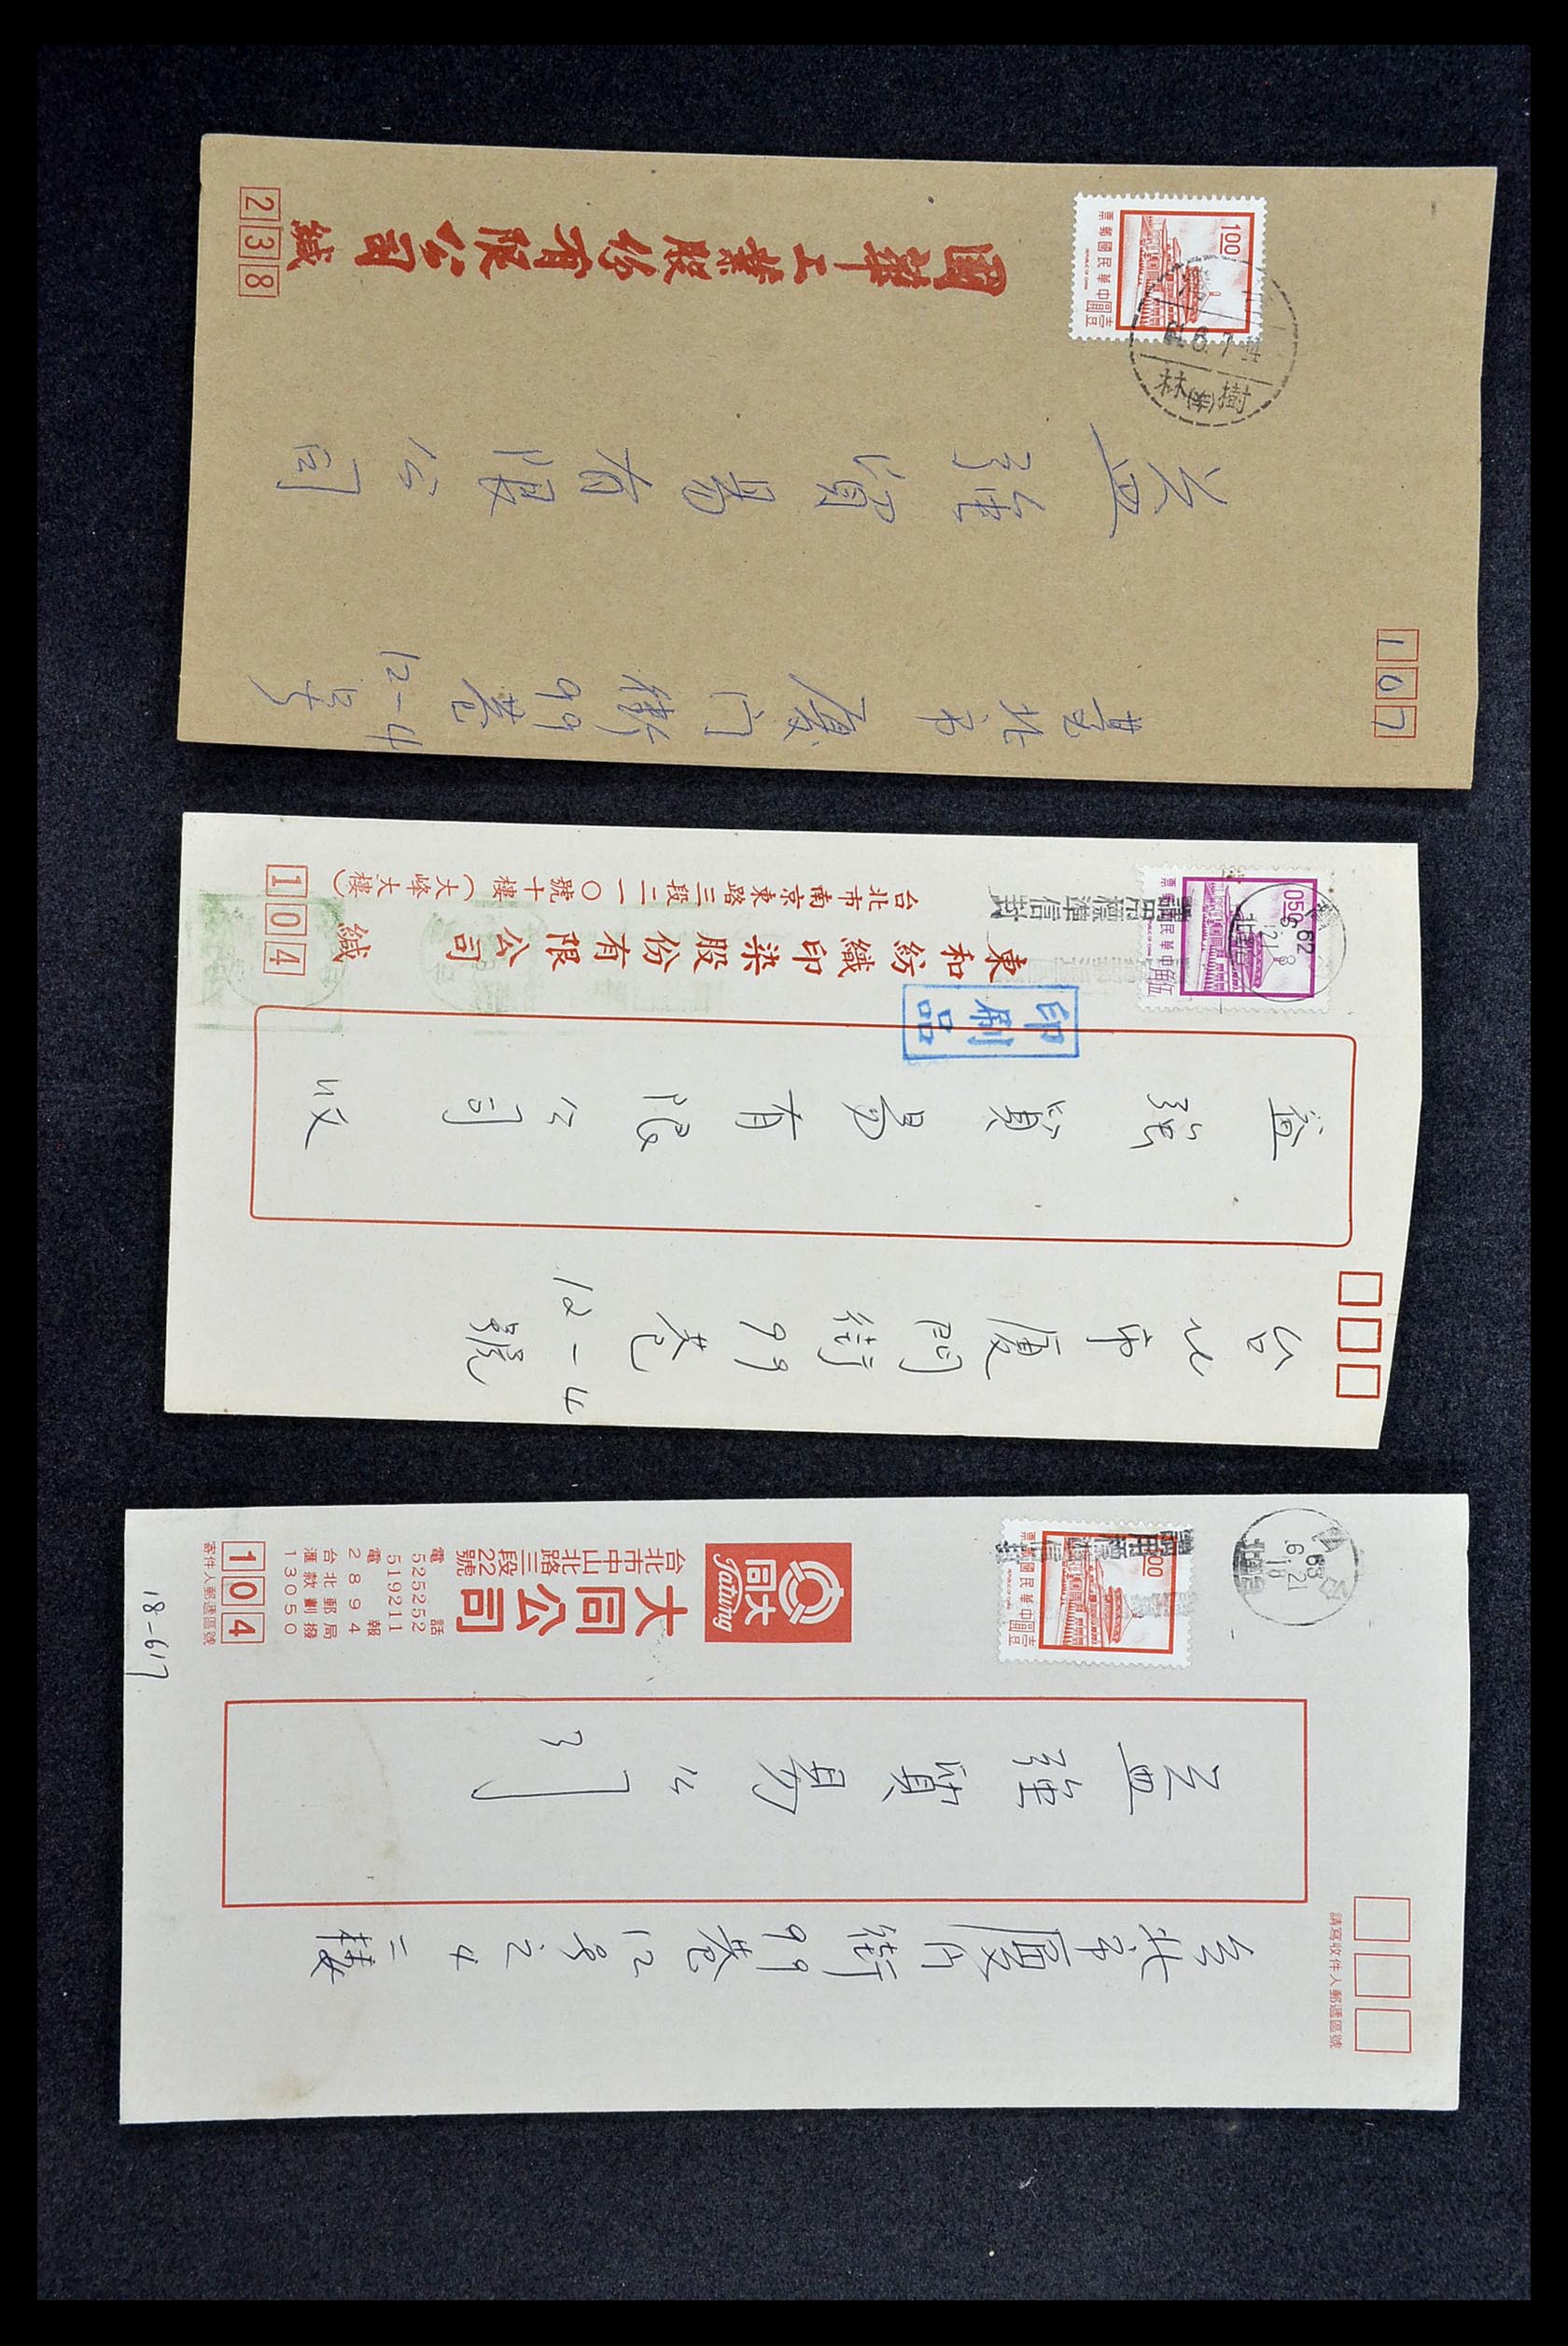 107
臺北市廈门街99巷
12-4号
益強貿易有限公司
國華工業股份有限公司緘
238
1.00
中華民國郵票
壹圓
REPUBLIC OF CHINA
樹林
台北市廈門街99巷
12-4
號
益強貿易有限公司 收
印刷品
東和紡織印染股份有限公司 緘
台北市南京東路三段二一〇號十樓(大峰大樓)
104
050
中華民國郵票
伍角
請用標準信封
請寫收件人郵遞區號
台北市廈门街99巷12号之4
二樓
益強貿易公司
大同
Tatung
大同公司
台北市中山北路三段22號
電話
525252
519211
電報
2894
台北郵局
滙款劃撥
13050
104
寄件人郵遞區號
18-617
1.00
中華民國郵票
壹圓
REPUBLIC OF CHINA
請用標準信封
63
6.18
21